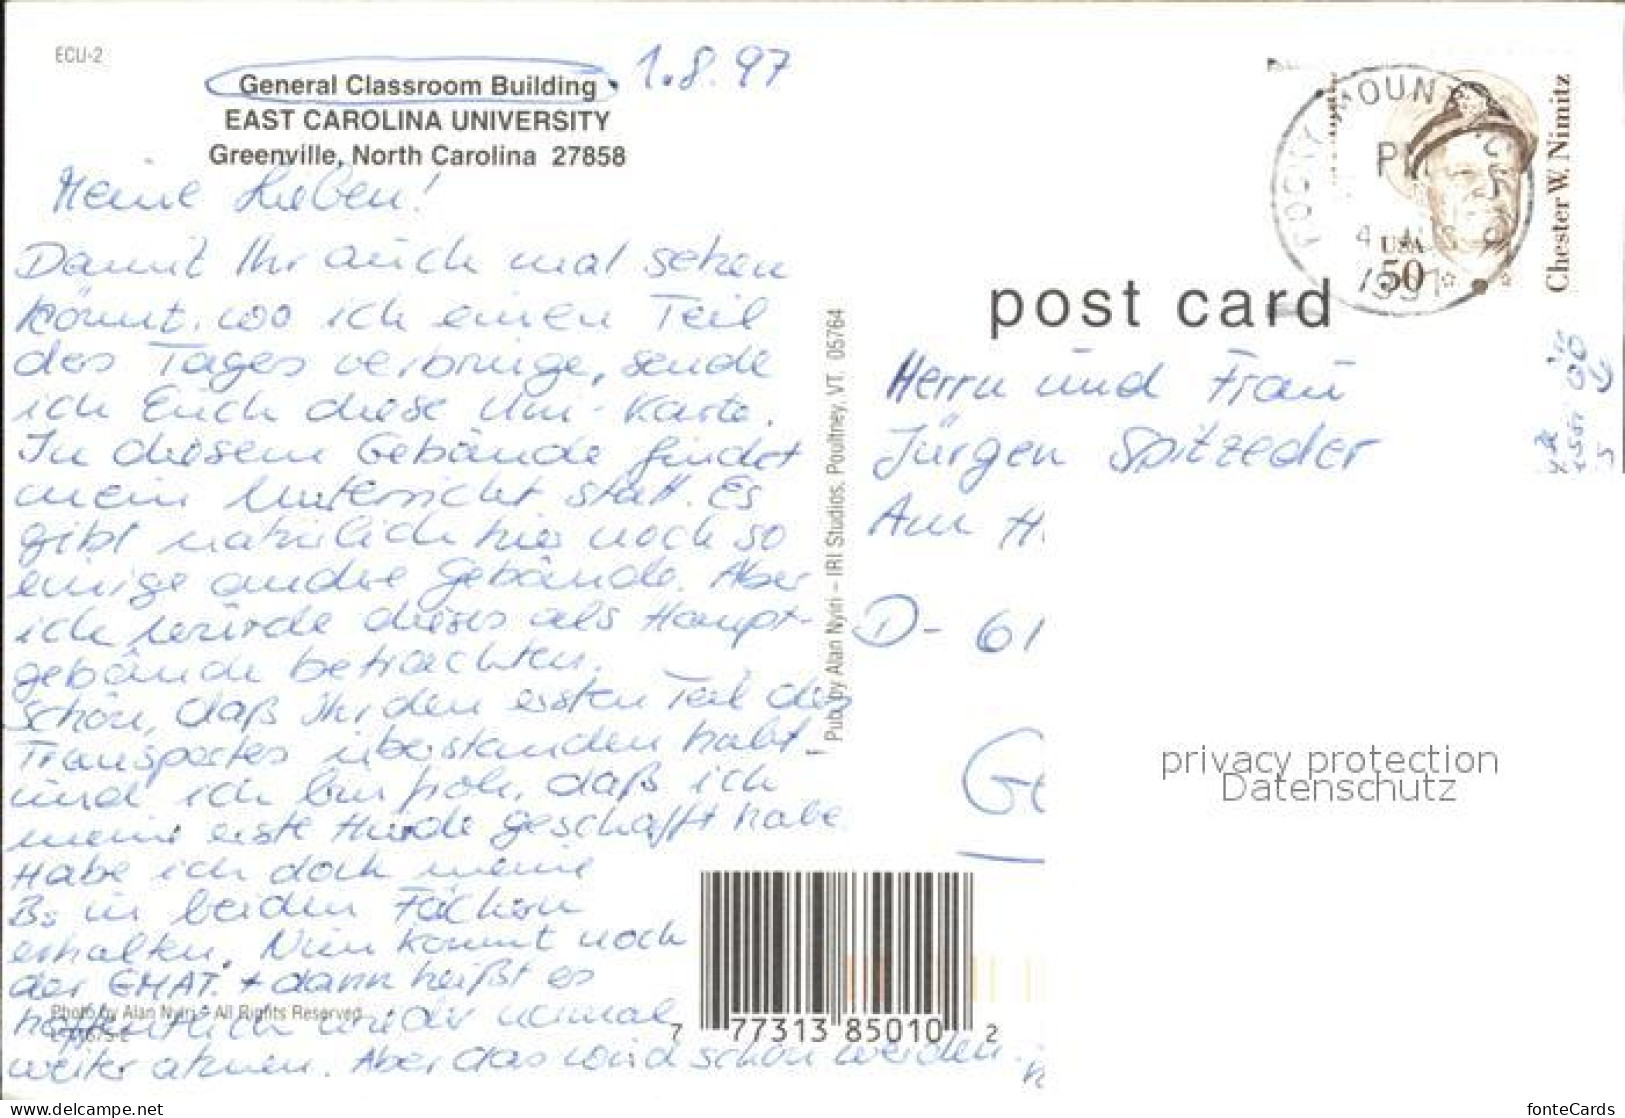 ECU-2
General Classroom Building • 1.8.97
EAST CAROLINA UNIVERSITY
Greenville, North Carolina 27858
Meine Lieben!
Damit Ihr auch mal sehen
könnt, wo ich einen Teil
des Tages verbringe, sende
ich Euch diese Uni-Karte.
In diesem Gebäude findet
mein Unterricht statt. Es
gibt natürlich hier noch so
einige andre Gebäude. Aber
ich würde dieses als Haupt-
gebäude betrachten.
Schön, daß Ihr den ersten Teil des
Transportes überstanden habt -
und ich bin froh, daß ich
meine erste Hürde geschafft habe.
Habe ich doch meine
Bs in beiden Fächern
erhalten. Nun kommt noch
der GMAT. + dann heißt es
hoffentlich wieder normal
weiter atmen. Aber das wird schon werden.
Photo by Alan Nyiri - All Rights Reserved
Pub. by Alan Nyiri – IRI Studios, Poultney, VT. 05764
post card
ROCKY MOUNT
PM
4
1997
USA
50
Chester W. Nimitz
Herrn und Frau
Jürgen Spitzeder
Am H
D- 61
Ge
privacy protection
Datenschutz
7 77313 85010 2
www.delcampe.net
fonteCards